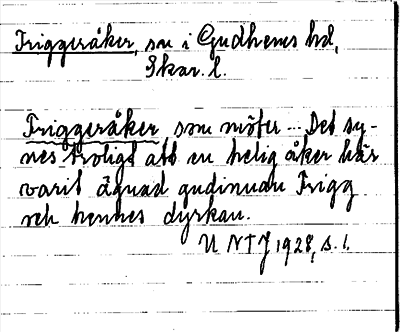 Friggeråker, sn i Gudhems hd,
Skar. l.
Friggeråker som möter... Det sy-
nes troligt att en helig åker här
varit ägnad gudinnan Frigg
och hennes dyrkan.
U NTJ 1928, s. 1.